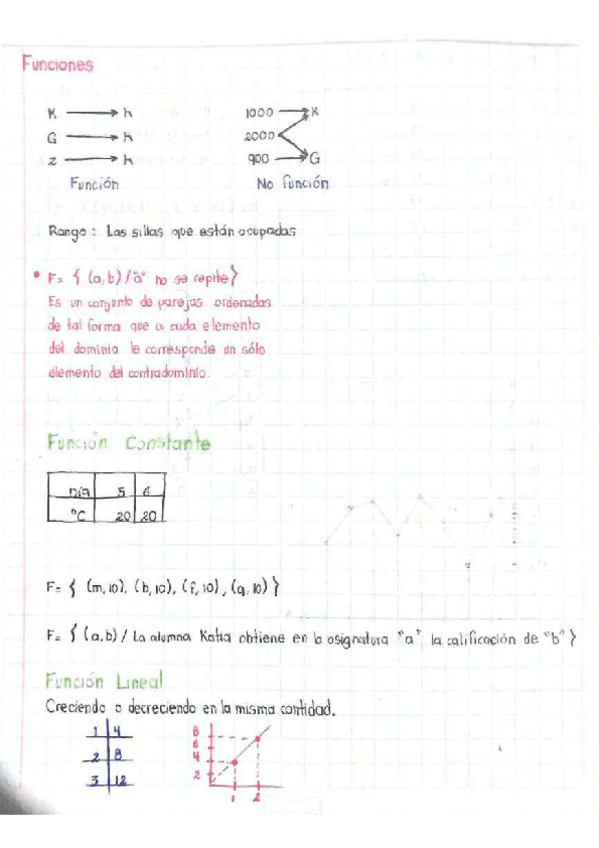 Funciones
K → h 1000 → K
G → h 2000
z → h 900 → G
Función No función
Rango: Las sillas que están ocupadas
• F= { (a,b) / "a" no se repite}
Es un conjunto de parejas ordenadas
de tal forma que a cada elemento
del dominio le corresponde un sólo
elemento del contradominio.
Función Constante
Día 5 6
°C 20 20
F= { (m,10), (b,10), (f,10), (q,10) }
F= { (a,b) / La alumna Katia obtiene en la asignatura "a" la calificación de "b" }
Función Lineal
Creciendo o decreciendo en la misma cantidad.
1 4
2 8
3 12
8
6
4
2
1 2